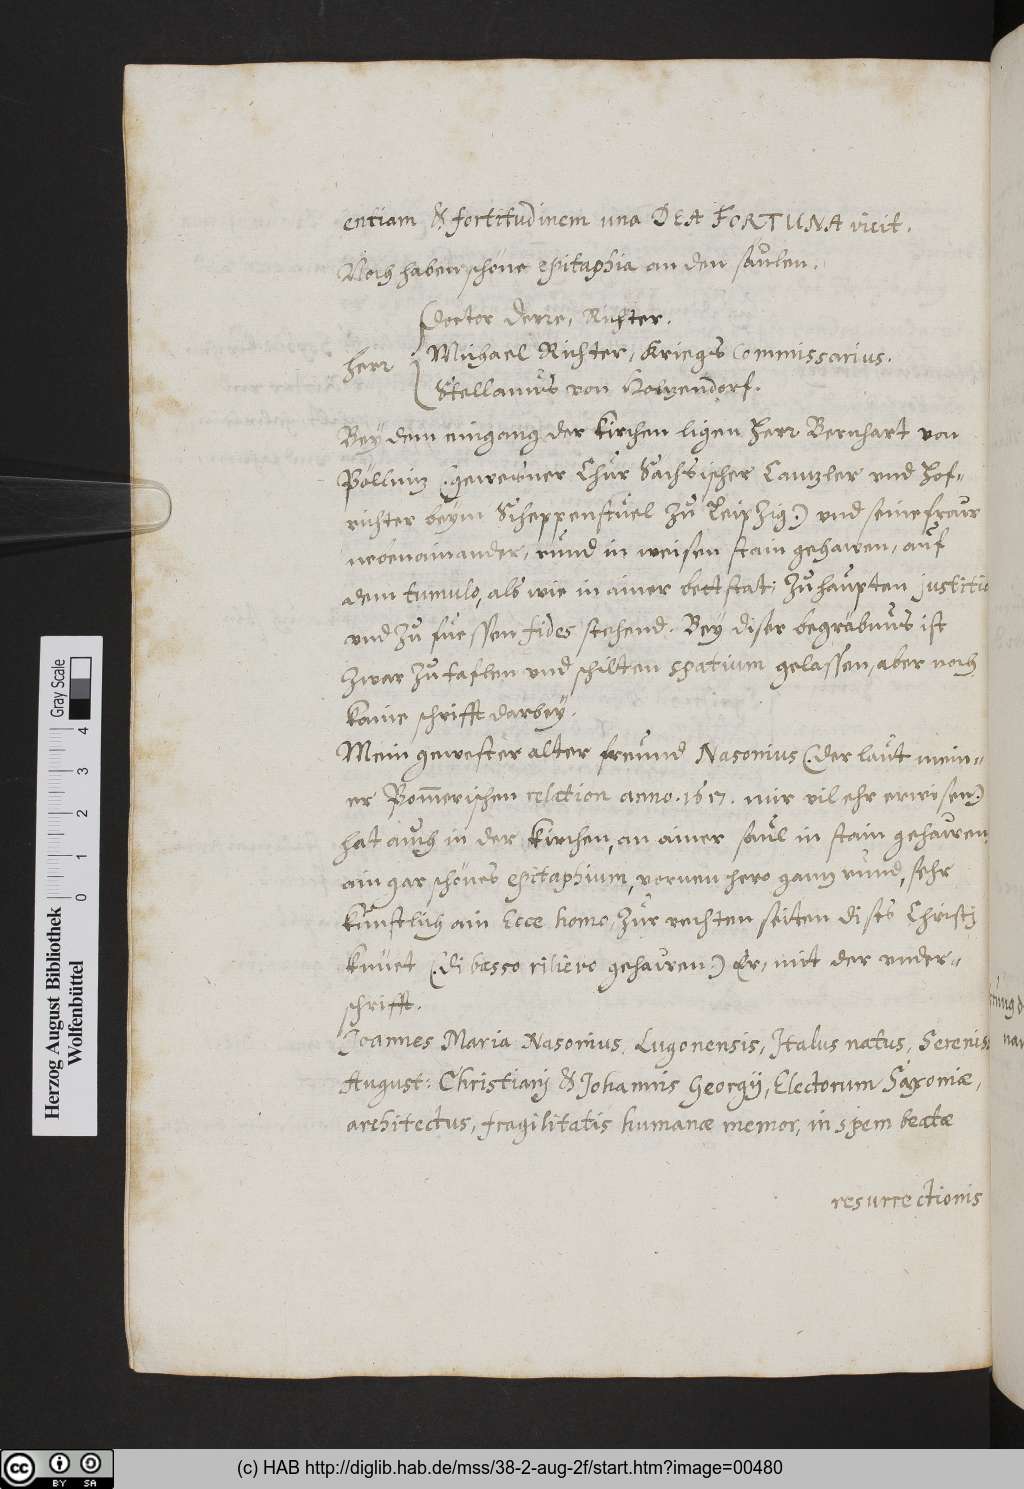 entiam & fortitudinem una DEA FORTUNA vicit.
Noch haben schöne epitaphia an den saülen.
Doctor Derre, Richter.
Herr Michael Richter, Kriegs Commissarius.
Stellanüs von Holzendorf.
Bey dem eingang der Kirchen ligen Herr Bernhart von
Pöllniz (gewesner Chür Sächsischer Cantzler vnd Hof-
richter beym Scheppenstüel zü Leipzig) vnd seine fraw
nebenainander, ründ in weisen stain gehawen, aüf
dem tumulo, als wie in ainer bettstat; Zü haüpten justitia
vnd zü füessen fides stehend. Bey diser begräbnüs ist
zwar zü taflen vnd schilten spatium gelassen, aber noch
kaine schrifft darbey.
Mein gewester alter freünd Nasonius (der laüt mein-
er Pom̄erischen relation anno. 1617. mir vil ehr erwisen)
hat aüch in der Kirchen, an ainer saül in stain gehawen,
ain gar schönes epitaphium, vornen hero gantz rund, sehr
künstlich ain Ecce homo, Zür rechten seitten dises Christi
kniet (di basso rilievo gehawen) Er, mit der vnder-
schrifft.
Joannes Maria Nasonius, Lugonensis, Italus natus, Sereniss:
August: Christiani & Johannis Georgij, Electorum Saxoniæ,
architectus, fragilitatis humanæ memor, in spem beatæ
resurrectionis
Herzog August Bibliothek
Wolfenbüttel
Gray Scale
0 1 2 3 4
(c) HAB http://diglib.hab.de/mss/38-2-aug-2f/start.htm?image=00480
cc BY SA